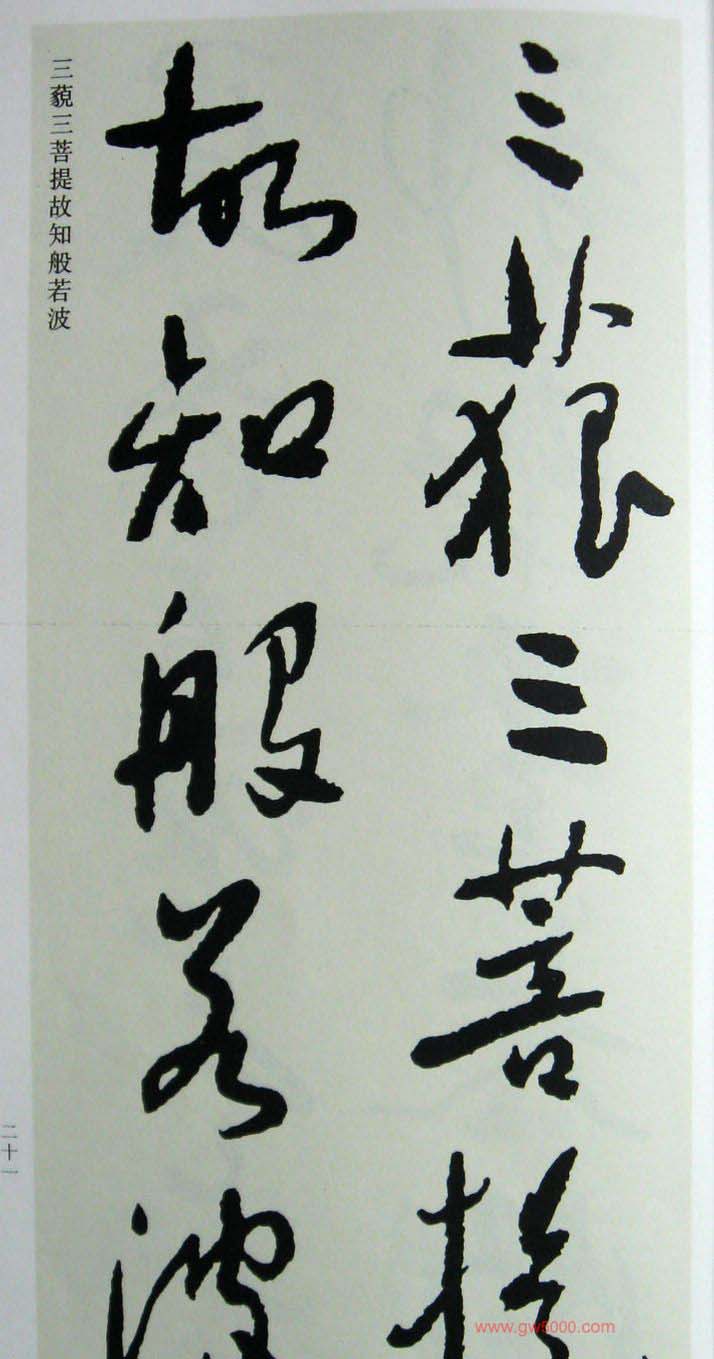 三藐三菩提
故知般若波
三藐三菩提故知般若波
二十一
www.gw5000.com